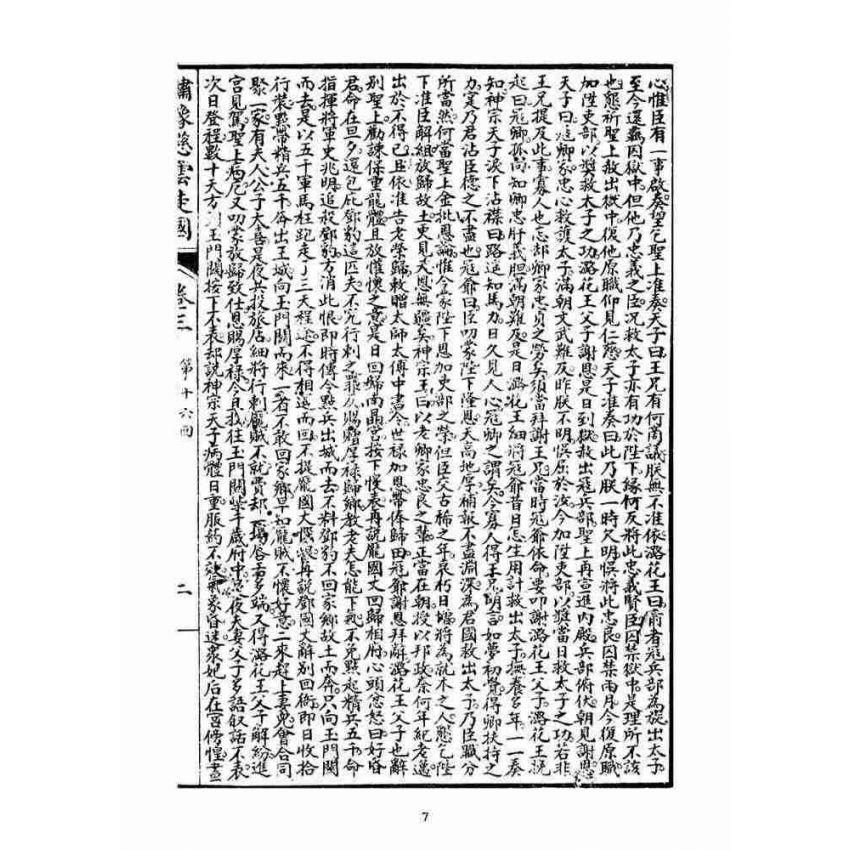 心惟臣有一事啟奏望乞聖上准奏天子曰王兄有何商議朕無不准依潞花王曰前者寇兵部為從出太子
至今還羈囚獄中但他乃忠義之臣况救太子亦有功於陛下緣何反將此忠義賢臣囚禁獄中是理所不該
也懇祈聖上救出獄中復他原職仰見仁慈天子准奏曰此乃朕一時欠明悞將此忠良囚禁兩月今復原職
加陞吏部以奬救太子之功潞花王父子謝恩是日到獄救出寇兵部聖上再宣進內殿兵部俯伏朝見謝恩
天子曰寇卿家忠心救護太子滿朝文武難及昨朕不明悞屈於汝今加陞吏部以奬當日救太子之功若非
王兄提及此事寡人也忘却卿家忠貞之勞矣須當拜謝王兄當時寇爺依命要叩謝潞花王父子潞花王挽
起曰寇卿孤尚知卿忠肝義胆滿朝難及是日潞花王細將寇爺昔日怎生用計救出太子撫養多年一一奏
知神宗天子淚下沾襟曰路遥知馬力日久見人心寇卿之謂矣今寡人得王兄明言如夢初覺得卿扶持之
力寔乃君沾臣德之不盡也寇爺曰臣叨蒙陛下隆恩天高地厚補報不盡淵深為君國救出太子乃臣職分
所當然何當聖上金批恩論惟今蒙陛下恩加吏部之榮但臣交古稀之年衰朽日增將為就木之人懇乞陛
下准臣解組放歸故土更見天恩無疆矣神宗王曰以老卿家忠良之輩正當在朝授以邦政奈何年紀老邁
出於不得已且依准告老榮歸救贈太師太傅中書令世祿加恩帶俸歸田寇爺謝恩拜辭潞花王父子也辭
别聖上勸諫保重龍體且放懷懷之意是日回歸尚鼎宮按下慢表再說龐國丈回歸相府心頭忿怒曰好昏
君命在旦夕還包庇鄧豹這匹夫不究行刺之罪反賜贈厚祿歸鄉教老夫怎能下氣不免點起精兵五千命
指揮將軍史兆明追殺鄧豹方消此恨即時傳令點兵出城而去不料鄧豹不回家鄉故土而奔只向玉門關
而去是以五千軍馬枉跑走了三天程途不得相遇而回不提龐國丈懊恨再說鄧國丈辭别回衙即日收拾
行裝點帶精兵五千齊出王城向玉門關而來一者不敢回家鄉早知龐賊不懷好意二來趕上妻兒會合同
聚一家有夫人公子大喜是夜兵投旅店細將行刺龐賊不就費却一塲唇舌多端又得潞花王父子解紛進
宮見駕聖上病危又叨蒙放歸致仕恩賜厚祿今且我往玉門關柴千歲府中是夜夫妻父子多語叙話不表
次日登程數十天方到玉門關按下不表却說神宗天子病體日重服藥不效氣象昏迷衆妃后在宮傍惶晝
繡像慈雲走國
卷三
第十六回
二
7